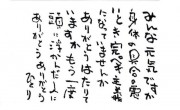 みんな元気ですか
身体の具合の悪
いとき完ぺき主義
になっていませんか
ありがとうはたりて
いますか もう一度
頭に浮かんだ人に
ありがとうありがとう
ひとり